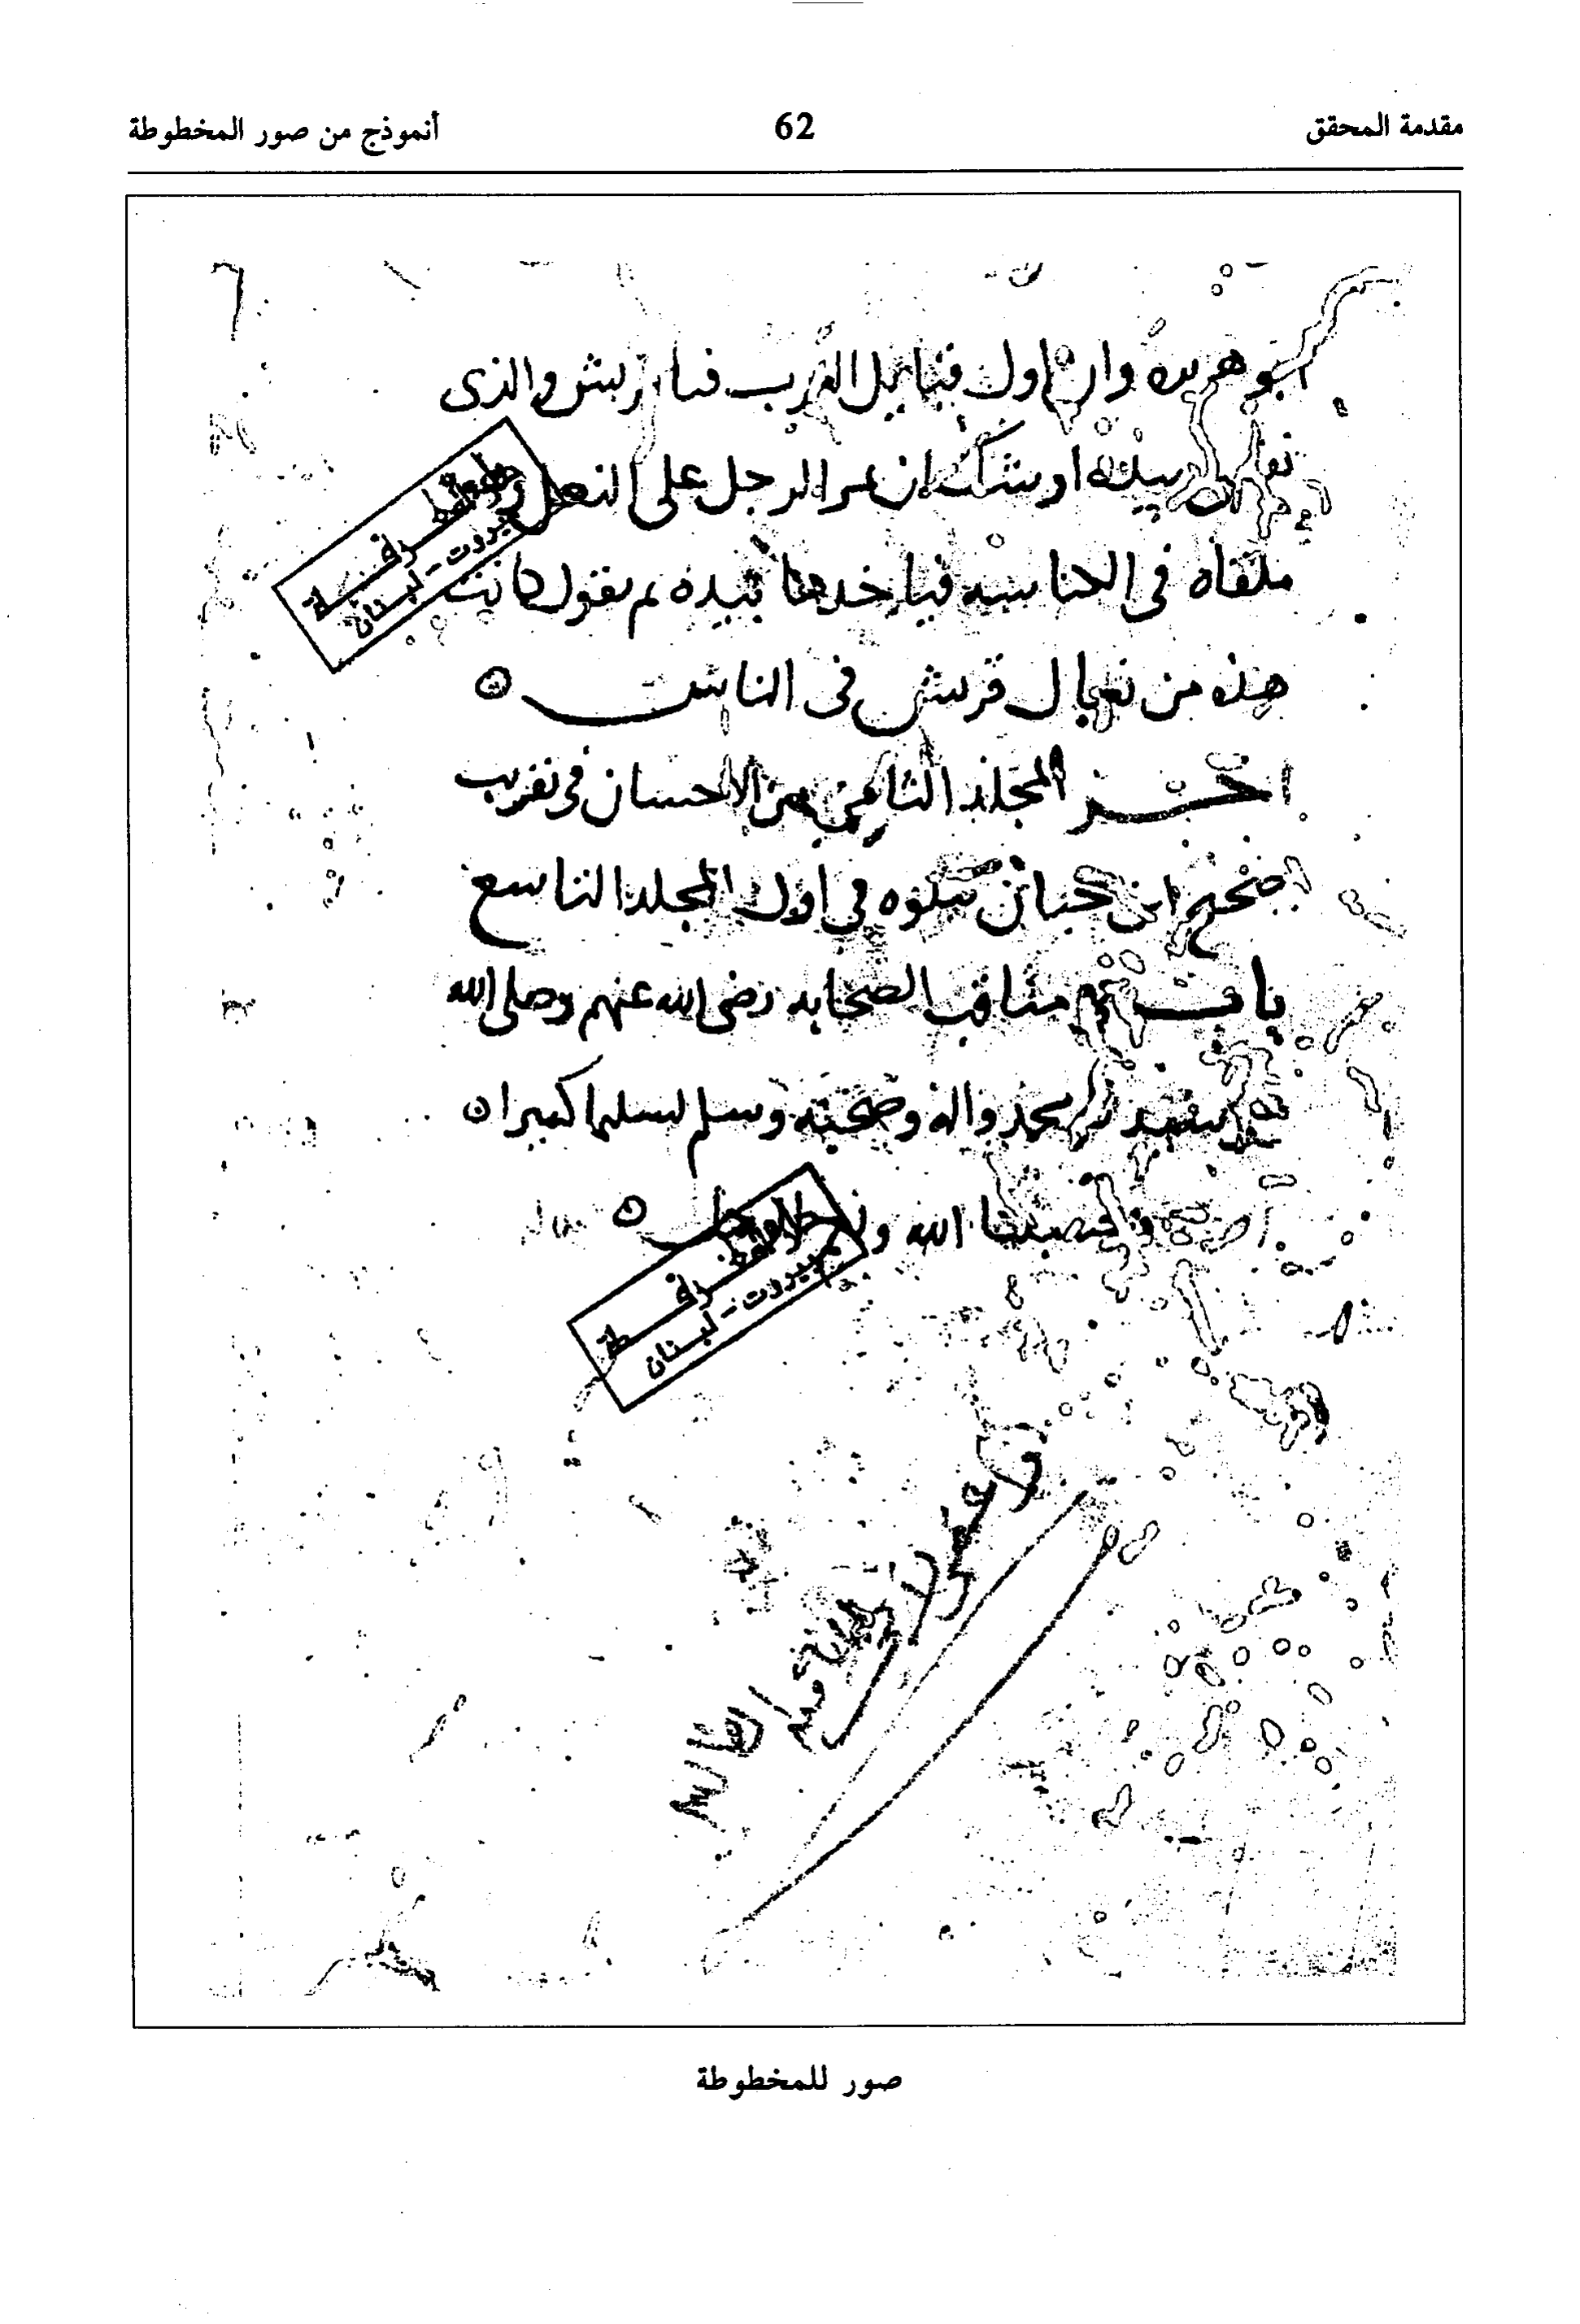 مقدمة المحقق
62
أنموذج من صور المخطوطة
ابو هريره وان اول قبايل العرب فنا قريش والذى
نفسى بيده اوشك ان يمر الرجل على النعل وهى
ملقاه فى الكناسه فياخدها بيده ثم يقول كانت
هذه من نعال قريش فى الناس
اخر المجلد الثامن من الاحسان فى تقريب
صحيح ابن حبان يتلوه فى اول المجلد التاسع
باب مناقب الصحابه رضى الله عنهم وصلى الله
على سيدنا محمد واله وصحبه وسلم تسليما كثيرا
وحسبنا الله ونعم الوكيل
بيروت - لبنان
بيروت - لبنان
صور للمخطوطة